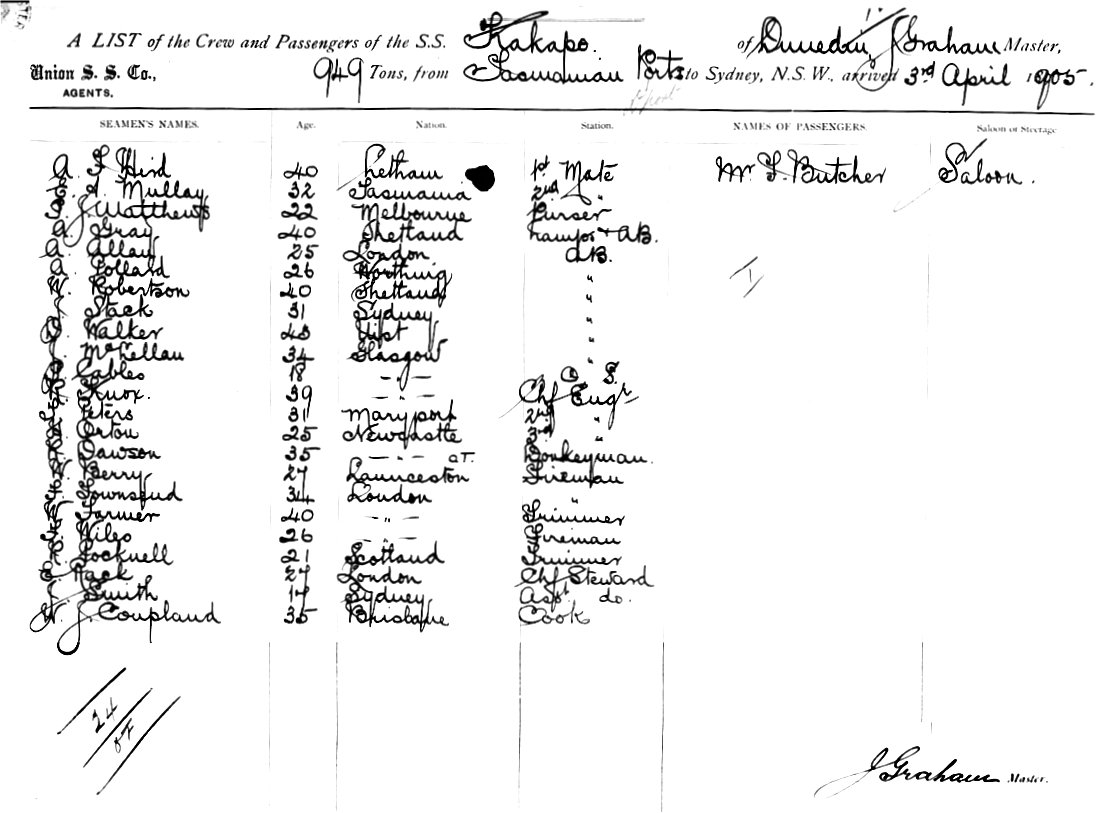 A LIST of the Crew and Passengers of the S.S. Kakapo. of Dunedin, J Graham Master,
Union S. S. Co., 949 Tons, from Tasmanian Ports to Sydney, N.S.W., arrived 3rd April 1905.
AGENTS.
SEAMEN'S NAMES. Age. Nation. Station. NAMES OF PASSENGERS. Saloon or Steerage
A. F Hird 40 Chetham 1st Mate Mr F. Butcher Saloon.
Mullay 32 Tasmania 2nd "
J. Matthews 22 Melbourne Purser
A. Gray 40 Shetland Lamps + AB.
A. Allan 25 London AB.
A. Pollard 26 Worthing "
W. Robertson 40 Shetland "
Stack 31 Sydney "
Walker 43 Uist "
McLellan 34 Glasgow "
Cables 18 — " — O. S.
Knox. 39 — " — Chf Engr
Peters 31 Maryport 2nd "
Orton 25 Newcastle 3rd "
Dawson 35 — " — Donkeyman.
W. Berry 27 Launceston Fireman
Townsend 34 London "
Farmer 40 — " — Trimmer
Wiles 26 — " — Fireman
Pocknell 21 Scotland Trimmer
Hack 27 London Chf Steward
Smith 17 Sydney Asst do.
W. J. Coupland 35 Brisbane Cook
24
J Graham Master.